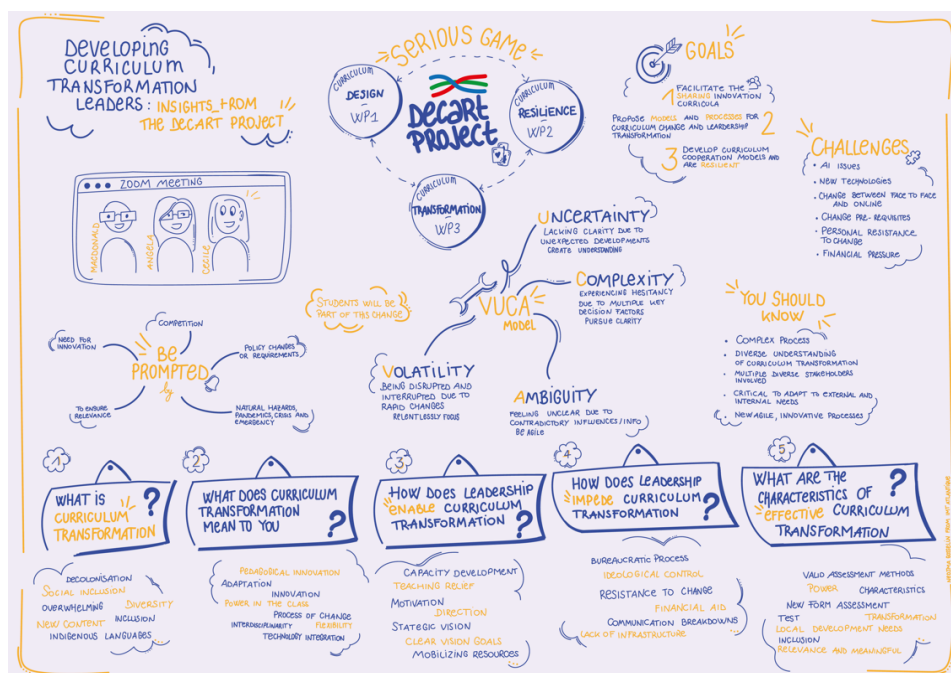 DEVELOPING
CURRICULUM
TRANSFORMATION
LEADERS: INSIGHTS FROM
THE DECART PROJECT
SERIOUS GAME
CURRICULUM
DESIGN
WP1
DECART
PROJECT
CURRICULUM
RESILIENCE
WP2
CURRICULUM
TRANSFORMATION
WP3
GOALS
1 FACILITATE THE
SHARING INNOVATION
CURRICULA
PROPOSE MODELS AND PROCESSES FOR
CURRICULUM CHANGE AND LEARDERSHIP
TRANSFORMATION
2
3 DEVELOP CURRICULUM
COOPERATION MODELS AND
ARE RESILIENT
CHALLENGES
• AI ISSUES
• NEW TECHNOLOGIES
• CHANGE BETWEEN FACE TO FACE
AND ONLINE
• CHANGE PRE-REQUISITES
• PERSONAL RESISTANCE
TO CHANGE
• FINANCIAL PRESSURE
ZOOM MEETING
MACDONALD
ANGELA
CECILE
STUDENTS WILL BE
PART OF THIS CHANGE
VUCA
MODEL
UNCERTAINTY
LACKING CLARITY DUE TO
UNEXPECTED DEVELOPMENTS
CREATE UNDERSTANDING
COMPLEXITY
EXPERIENCING HESITANCY
DUE TO MULTIPLE KEY
DECISION FACTORS
PURSUE CLARITY
VOLATILITY
BEING DISRUPTED AND
INTERRUPTED DUE TO
RAPID CHANGES
RELENTLESSLY FOCUS
AMBIGUITY
FEELING UNCLEAR DUE TO
CONTRADICTORY INFLUENCES/INFO
BE AGILE
BE
PROMPTED
by
NEED FOR
INNOVATION
COMPETITION
POLICY CHANGES
OR REQUIREMENTS
TO ENSURE
RELEVANCE
NATURAL HAZARDS,
PANDEMICS, CRISIS AND
EMERGENCY
YOU SHOULD
KNOW
• COMPLEX PROCESS
• DIVERSE UNDERSTANDING
OF CURRICULUM TRANSFORMATION
• MULTIPLE DIVERSE STAKEHOLDERS
INVOLVED
• CRITICAL TO ADAPT TO EXTERNAL AND
INTERNAL NEEDS
• NEW AGILE, INNOVATIVE PROCESSES
1
WHAT IS
CURRICULUM
TRANSFORMATION
?
DECOLONISATION
SOCIAL INCLUSION
OVERWHELMING DIVERSITY
NEW CONTENT INCLUSION
INDIGENOUS LANGUAGES ...
2
WHAT DOES CURRICULUM
TRANSFORMATION
MEAN TO YOU
?
PEDAGOGICAL INNOVATION
ADAPTATION
INNOVATION
POWER IN THE CLASS
PROCESS OF CHANGE
INTERDISCIPLINARITY FLEXIBILITY
TECHNOLOGY INTEGRATION ...
3
HOW DOES LEADERSHIP
ENABLE CURRICULUM
TRANSFORMATION
?
CAPACITY DEVELOPMENT
TEACHING RELIEF
MOTIVATION
DIRECTION
STATEGIC VISION
CLEAR VISION GOALS
MOBILIZING RESOURCES ...
4
HOW DOES LEADERSHIP
IMPEDE CURRICULUM
TRANSFORMATION
?
BUREAUCRATIC PROCESS
IDEOLOGICAL CONTROL
RESISTANCE TO CHANGE
FINANCIAL AID
COMMUNICATION BREAKDOWNS
LACK OF INFRASTRUCTURE ...
5
WHAT ARE THE
CHARACTERISTICS OF
EFFECTIVE CURRICULUM
TRANSFORMATION
?
VALID ASSESSMENT METHODS
POWER CHARACTERISTICS
NEW FORM ASSESSMENT
TEST TRANSFORMATION
LOCAL DEVELOPMENT NEEDS
INCLUSION
RELEVANCE AND MEANINGFUL ...